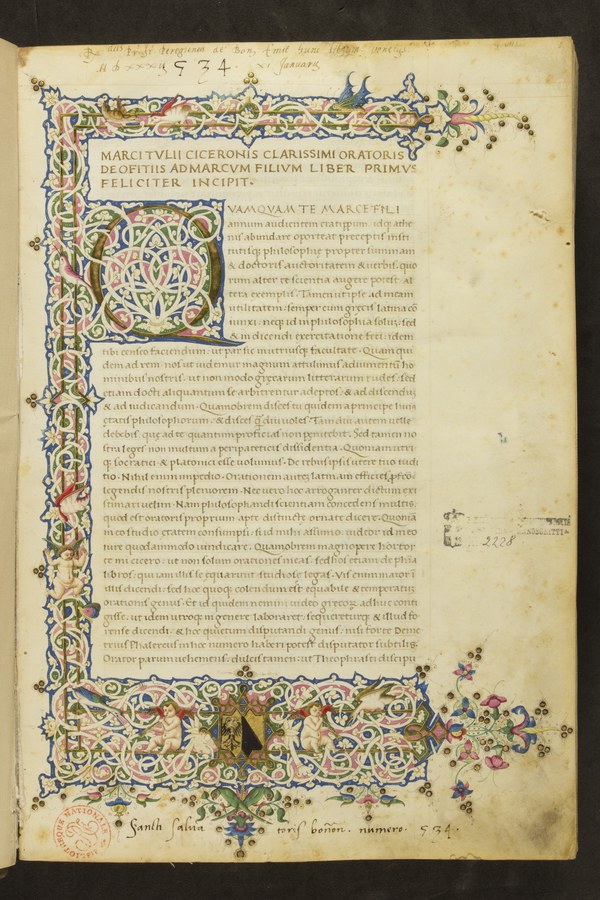 534
MARCI TULII CICERONIS CLARISSIMI ORATORIS
DE OFITIIS AD MARCUM FILIUM LIBER PRIMUS
FELICITER INCIPIT.
QUAMQUAM TE MARCE FILI
annum audientem cratippum. idq; athe
nis abundare oporteat preceptis insti
tutisq; philosophię propter summam
& doctoris auctoritatem & urbis. quo
rum alter te scientia augere potest. al
tera exemplis. Tamen ut ipse ad meam
utilitatem semper cum grecis latina co
iunxi. neq; id in philosophia solū. sed
& in dicendi exercitatione feci. idem
tibi censeo faciendum. ut par sis in utriusq; facultate. Quam qui
dem ad rem nos ut uidemur magnum attulimus adiumentū ho
minibus nostris. ut non modo gręcarum litterarum rudes. sed
etiam docti aliquantum se arbitrentur adeptos. & ad discendū
& ad iudicandum. Quamobrem disces tu quidem a principe huius
ętatis philosophorum. & disces q̄ diu uoles. Tamdiu autem uelle
debebis. quę ad te quantum proficias non penitebit. Sed tamen no
stra leges non multum a peripateticis dissidentia. Quoniam utri
q; socratici & platonici esse uolumus. De rebus ipsis utere tuo iudi
tio. Nihil enim impedio. Orationem autē latinam efficies
legendis nostris pleniorem. Nec uero hoc arroganter dictum exi
stimari uelim. Nam philosophandi scientiam concedens multis.
quod est oratoris proprium apte. distincte. ornate dicere. Quoniā
in eo studio ętatem consumpsi. si id mihi assumo. uideor id meo
iure quodammodo uendicare. Quamobrem magnopere te hortor
mi cicero. ut non solum orationes meas. sed hos etiam de phīa
libros. qui iam illis se equarunt. studiose legas. Vis enim maior ī
illis dicendi. sed hoc quoq; colendum est equabile & temperatū
orationis genus. Et id quidem nemini uideo grecoꝝ adhuc conti
gisse. ut idem utroq; in genere laboraret. sequereturq; & illud fo
rense dicendi. & hoc quietum disputandi genus. nisi forte Deme
trius Phalereus in hoc numero haberi potest. disputator subtilis.
Orator parum uehemens. dulcis tamen. ut Theophrasti discipu
2228
Sancti salua toris bonon. numero. 534.
BIBLIOTHEQUE NATIONALE